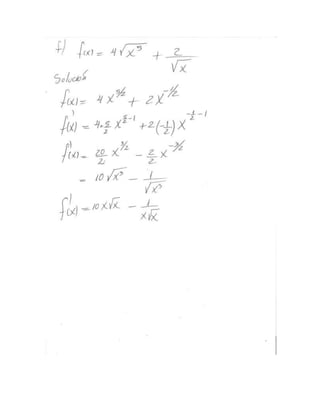 f) f(x) = 4√x⁵ + 2/√x
Solución
f(x) = 4x^5/2 + 2x^-1/2
f'(x) = 4·5/2 x^(5/2-1) + 2(-1/2) x^(-1/2-1)
f'(x) = 20/2 x^3/2 - 2/2 x^-3/2
= 10√x³ - 1/√x³
f'(x) = 10x√x - 1/x√x